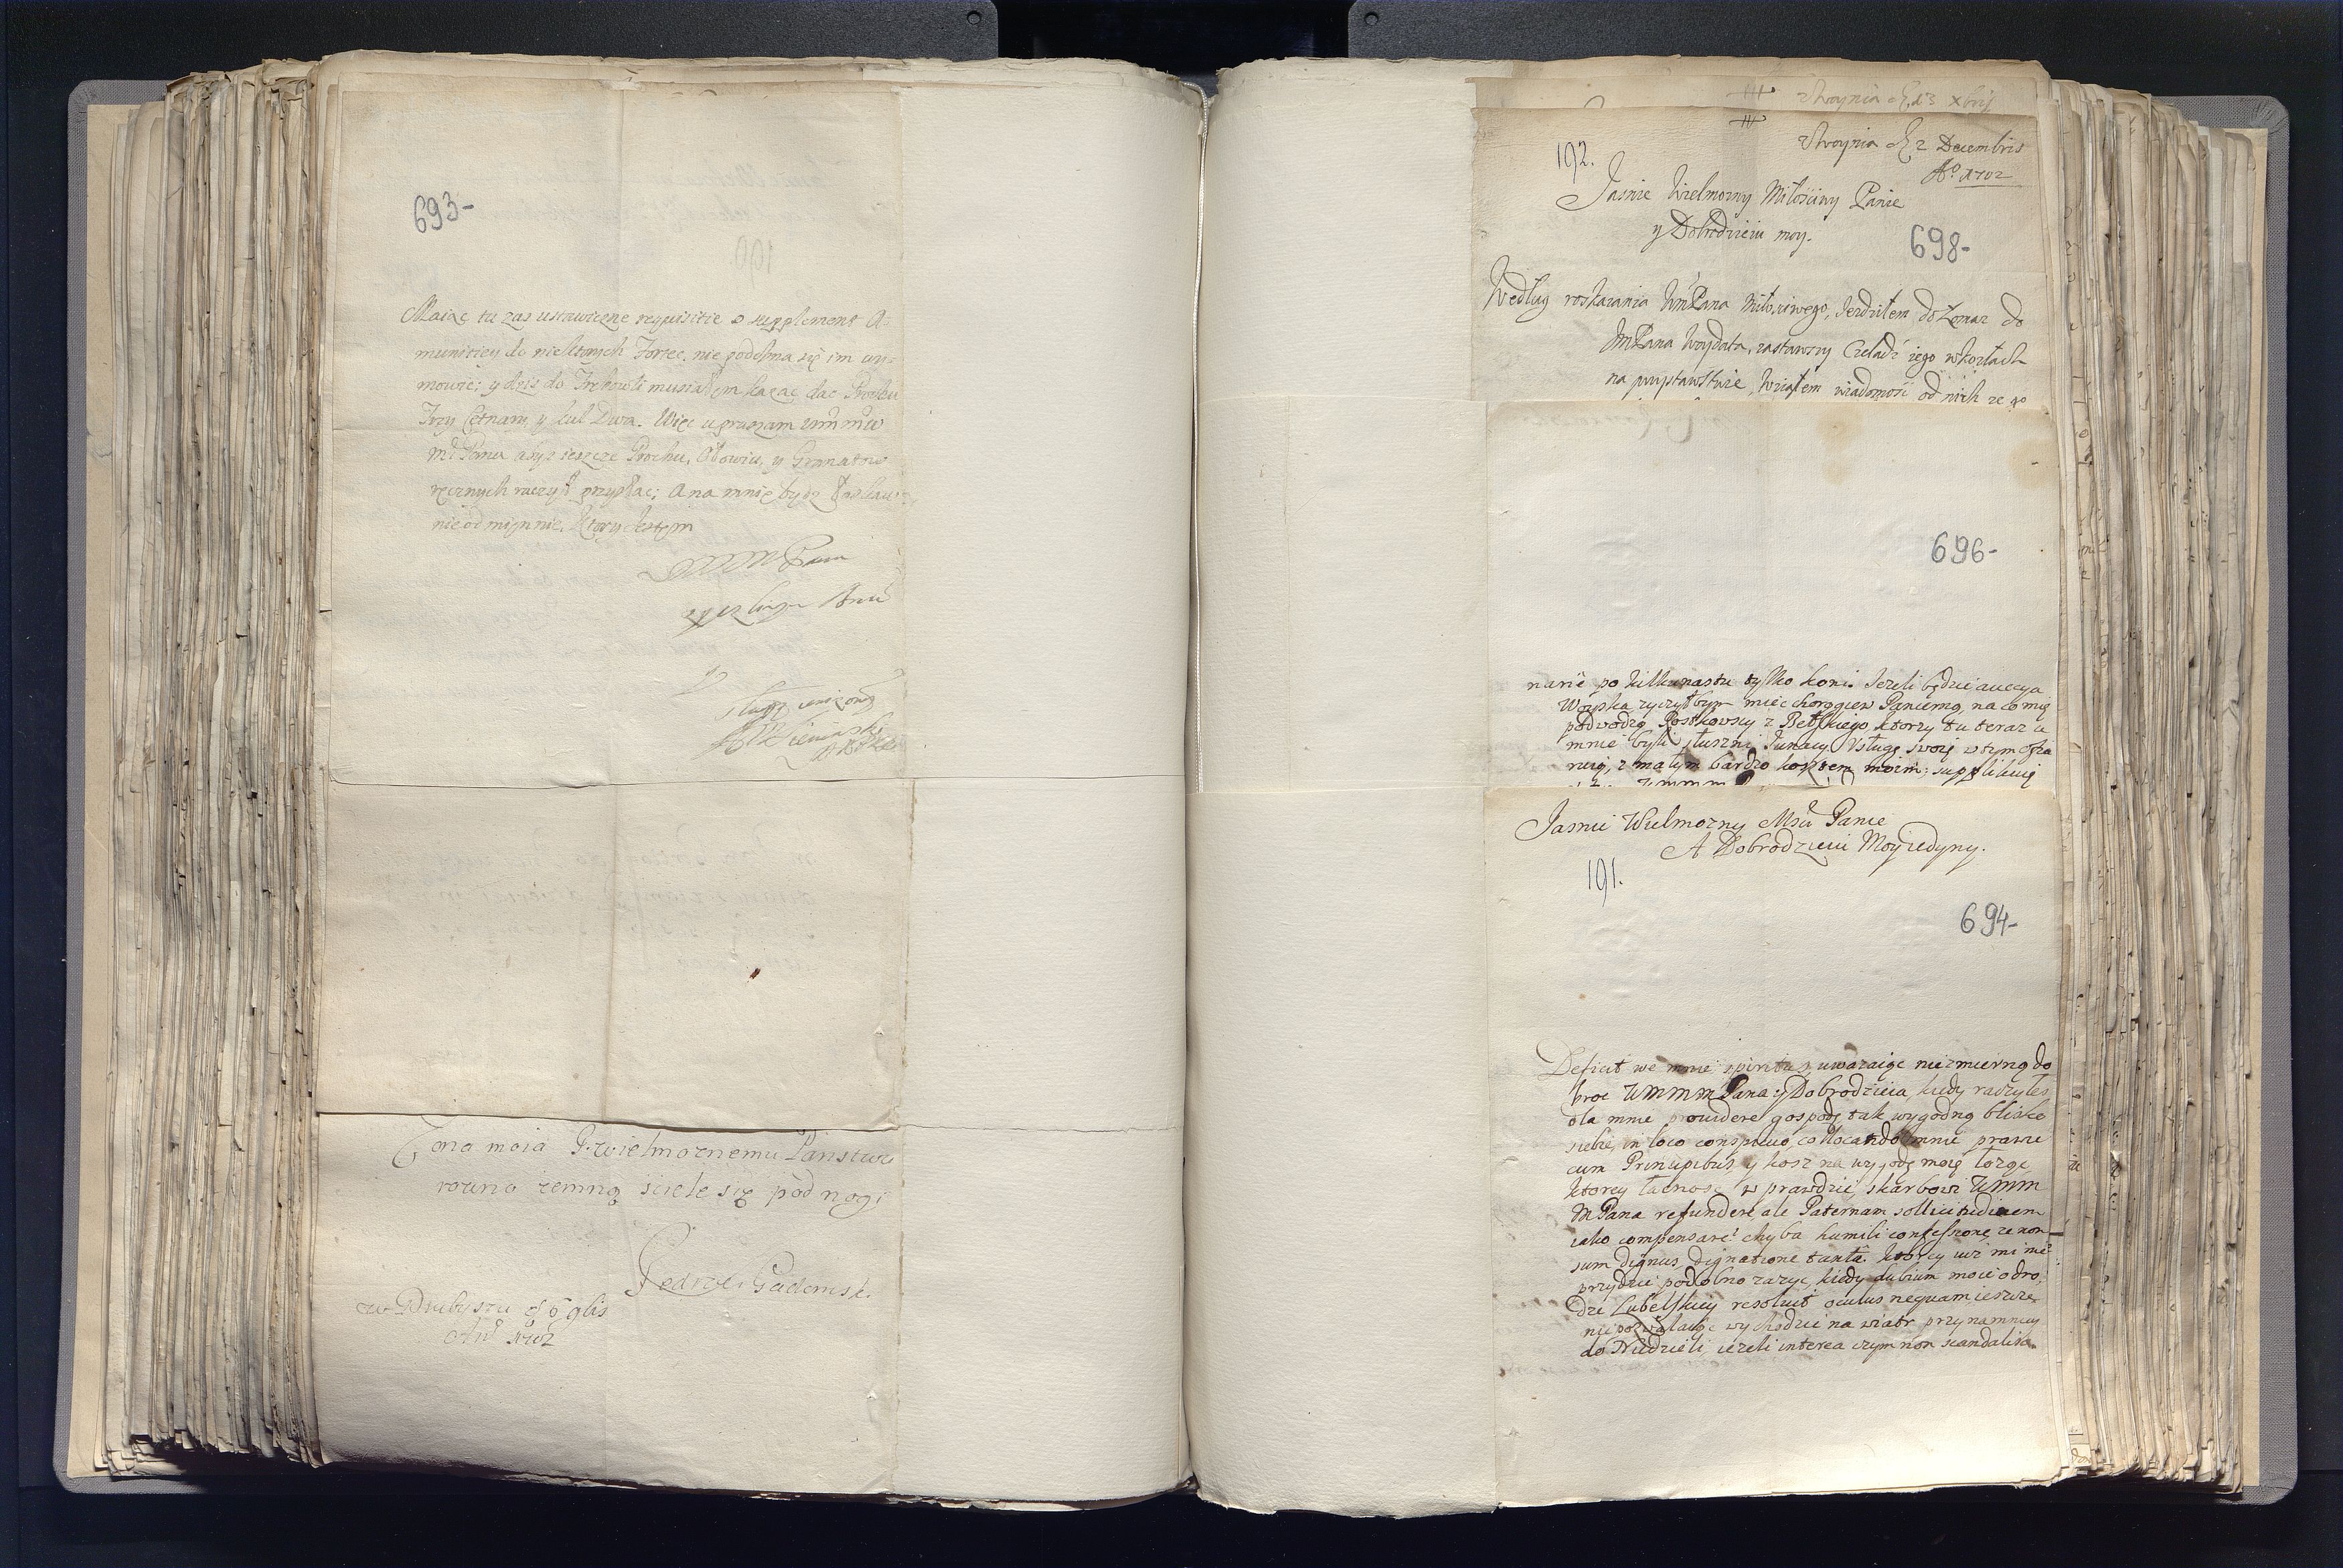 693-
Maiąc tu zas ustawiczne requisitie o supplement A-
munitiey do niektorych Fortec, nie podobna się im wy-
mowić; y dzis do Trębowli musiałem kazać dać Prochu
Trzy Cetnary y kul Dwa. Więc upraszam
M Pana abyś ieszcze Prochu, Ołowiu, y Granatow
ręcznych raczył przysłać; A na mnie bydz łaskaw
nieodmiennie, ktory iestem
Pana
sługa uniżony
Zona moia J. wielmoznemu Panstwu
rowno zemną sciele się pod nogi
Jędrzei Gadomsk.
w Drubyszu d 6 9bris
An 1702
Woynia d 13 xbris
Woynia d 2 Decembris
Aº 1702
192.
Jasnie Wielmozny Miłosciwy Panie
y Dobrodzieiu moy.
698-
Według roskazania WmPana Miłosciwego, Iezdziłem do Łomaz do
JmPana Woydata, zastawszy Czeladź iego w
na przystawstwie, Wziąłem wiadomość od nich ze
696-
narie po kilkunastu tylko koni. Jezeli będzie auccya
Woyska zyczyłbym miec chorągiew Pancerną, na co mię
podwodzą Rostkowscy z Bełskiego ktorzy tu teraz u
mnie byli, słuszni Junacy Usługę swoię w tym ofia
ruią, z małym bardzo kosztem moim; supplikuię
Jasnie Wielmozny Mści Panie
A Dobrodzieiu Moy iedyny.
191.
694-
Deficit we mnie spiritus, uwazaiąc niezmierną do
broc WMMM Pana y Dobrodzieia, kiedy raczyłes
dla mnie prouidere gospodę tak wygodną blisko
siebie, in loco conspicuo collocando mnie prawie
cum Principibus, y kosz na wygodę moię łoząc,
ktorey łacnosc w prawdzie skarbowi WMM
MPana refundere, ale Paternam sollicitudinem
iako compensare? chyba humili confessione, ze non
sum dignus, dignatione tanta. ktorey iuz mi nie
przydzie podobno zazyc, kiedy dubium moie o dro-
dze Lubelskiey resoluit oculus nequam, ieszcze
niepozwalaiąc wychodzić na wiatr przynamniey
do Niedzieli, iezeli interea czym non scandalisa-